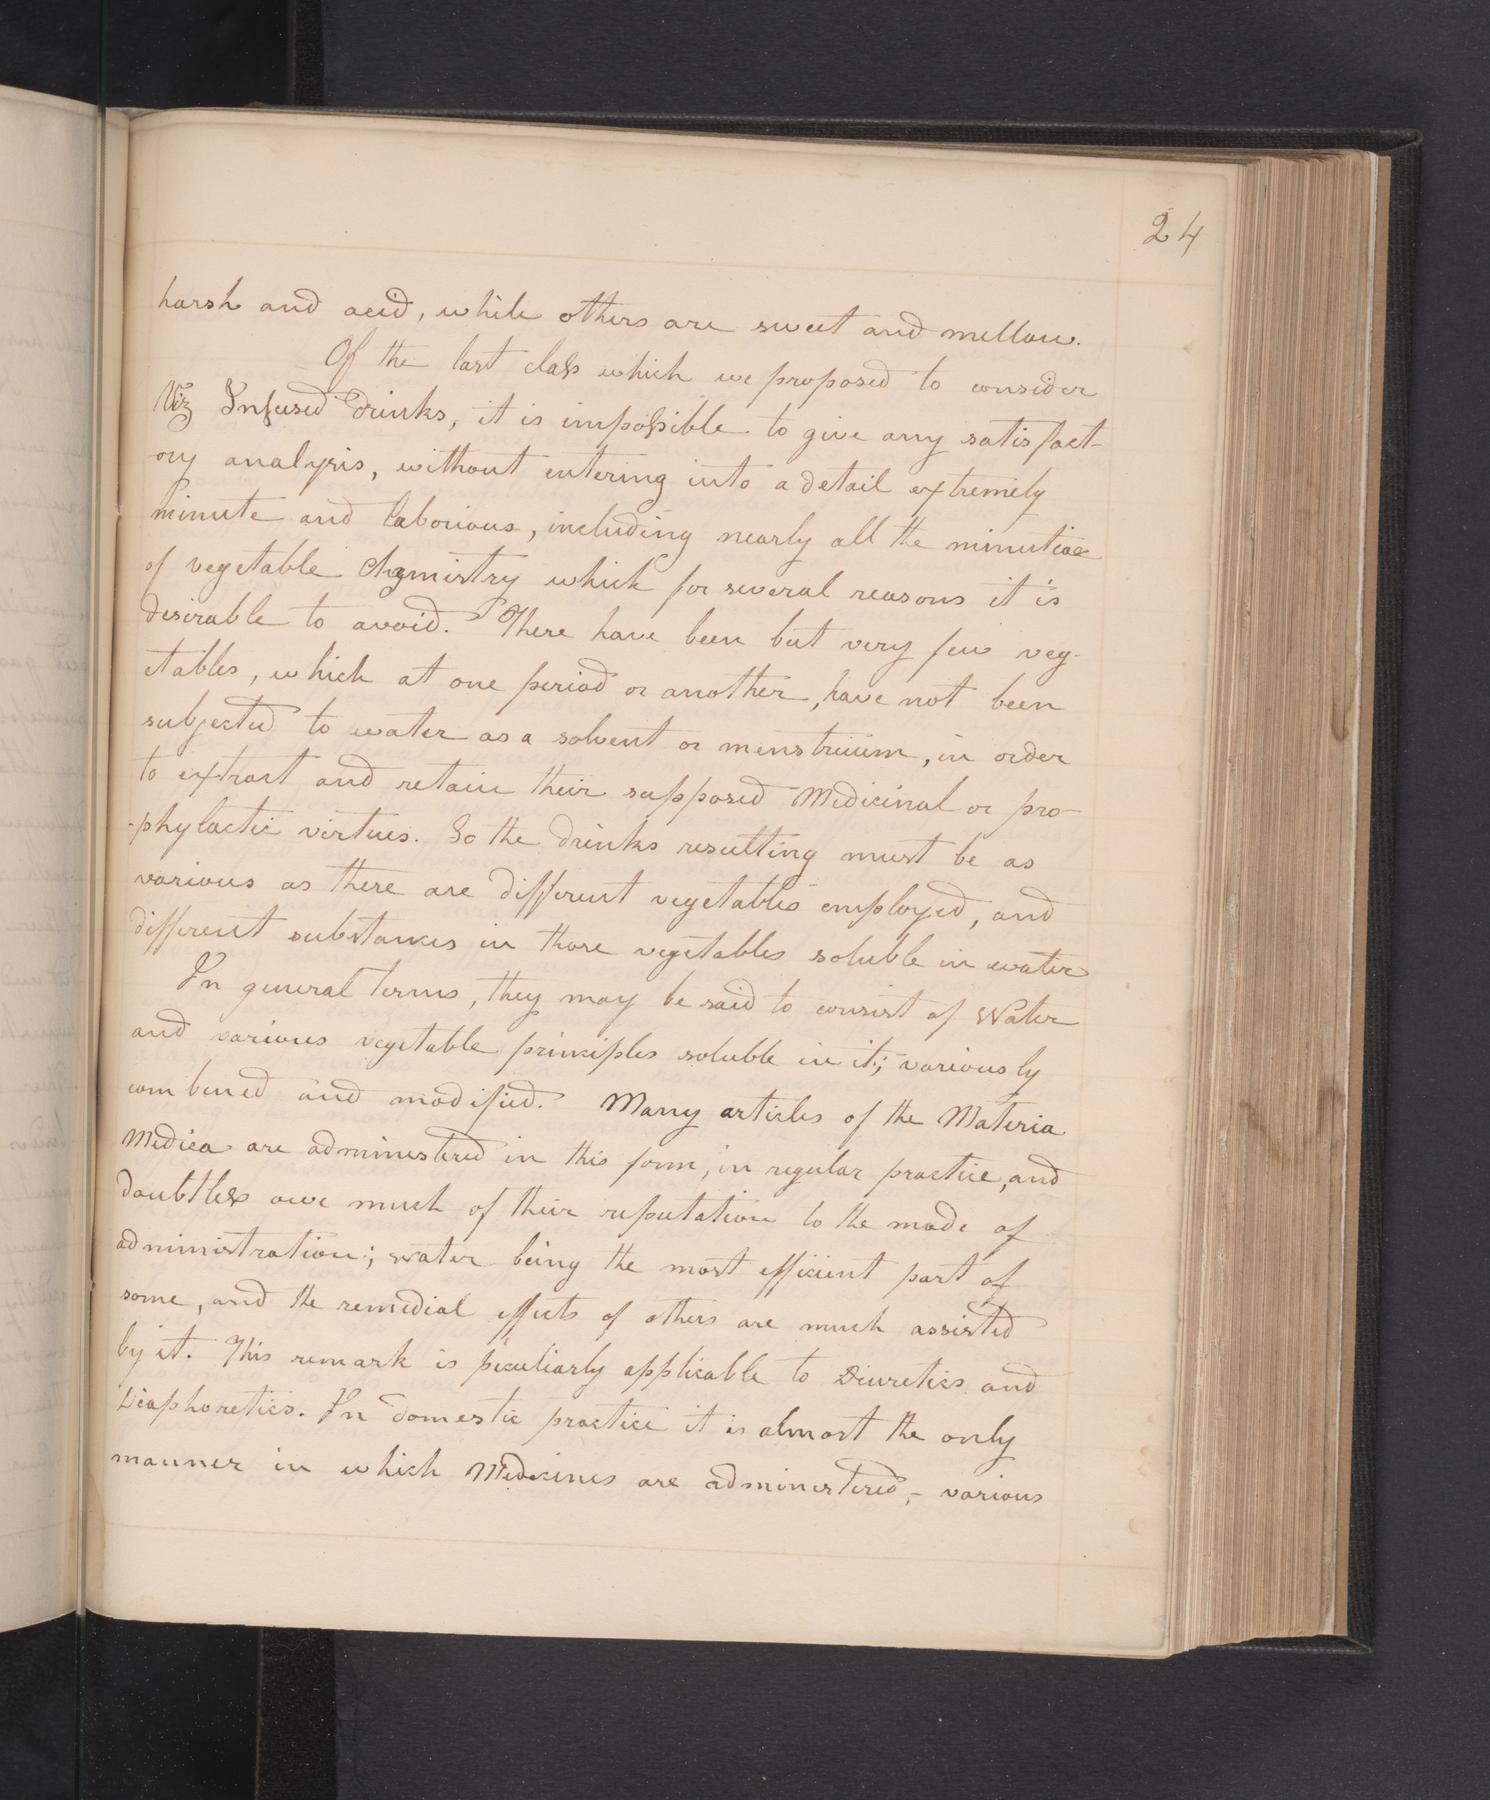 24
harsh and acid, while others are sweet and mellow.
Of the last class which we proposed to consider
Viz Infused drinks, it is impossible to give any satisfact-
ory analysis, without entering into a detail extremely
minute and laborious, including nearly all the minutiae
of vegetable Chymistry which for several reasons it is
desirable to avoid. There have been but very few veg-
etables, which at one period or another, have not been
subjected to water as a solvent or menstruum, in order
to extract and retain their supposed Medicinal or pro-
-phylactic virtues. So the drinks resulting must be as
various as there are different vegetables employed, and
different substances in those vegetables soluble in water
In general terms, they may be said to consist of Water
and various vegetable principles soluble in it; variously
combined and modified. Many articles of the Materia
Medica are administered in this form, in regular practice, and
doubtless owe much of their reputation to the mode of
administration; water being the most efficient part of
some, and the remedial effects of others are much assisted
by it. This remark is peculiarly applicable to Diuretics and
Diaphoretics. In domestic practice it is almost the only
manner in which Medicines are administered, - various